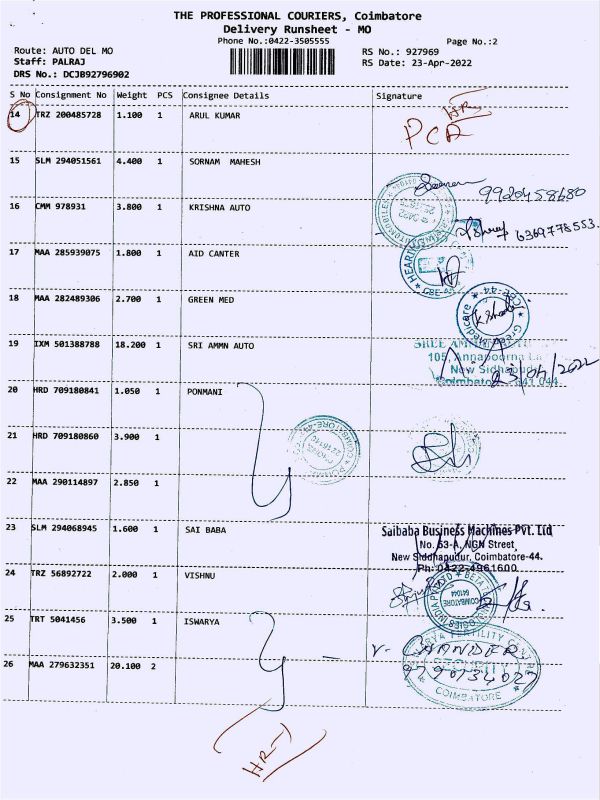 THE PROFESSIONAL COURIERS, Coimbatore
Delivery Runsheet - MO
Phone No.:0422-3505555
Page No.:2
Route: AUTO DEL MO
RS No.: 927969
Staff: PALRAJ
RS Date: 23-Apr-2022
DRS No.: DCJB92796902
S No Consignment No Weight PCS Consignee Details Signature
14 TRZ 200485728 1.100 1 ARUL KUMAR
15 SLM 294051561 4.400 1 SORNAM MAHESH
9920458680
16 CMM 978931 3.800 1 KRISHNA AUTO
6369778553.
17 MAA 285939075 1.800 1 AID CANTER
18 MAA 282489306 2.700 1 GREEN MED
19 IXM 501388788 18.200 1 SRI AMMN AUTO
105, Annapoorna
New Sidhapudur
Coimbatore - 641 044
23/04/2022
20 HRD 709180841 1.050 1 PONMANI
21 HRD 709180860 3.900 1
22 MAA 290114897 2.850 1
23 SLM 294068945 1.600 1 SAI BABA
Saibaba Business Machines Pvt. Ltd
No. 53-A, NGN Street,
New Siddhapudur, Coimbatore-44.
Ph: 0422-4961600
24 TRZ 56892722 2.000 1 VISHNU
COIMBATORE
641044
25 TRT 5041456 3.500 1 ISWARYA
V. CHANDER
FERTILITY
SECURITY
26 MAA 279632351 20.100 2
9790734027
COIMBATORE